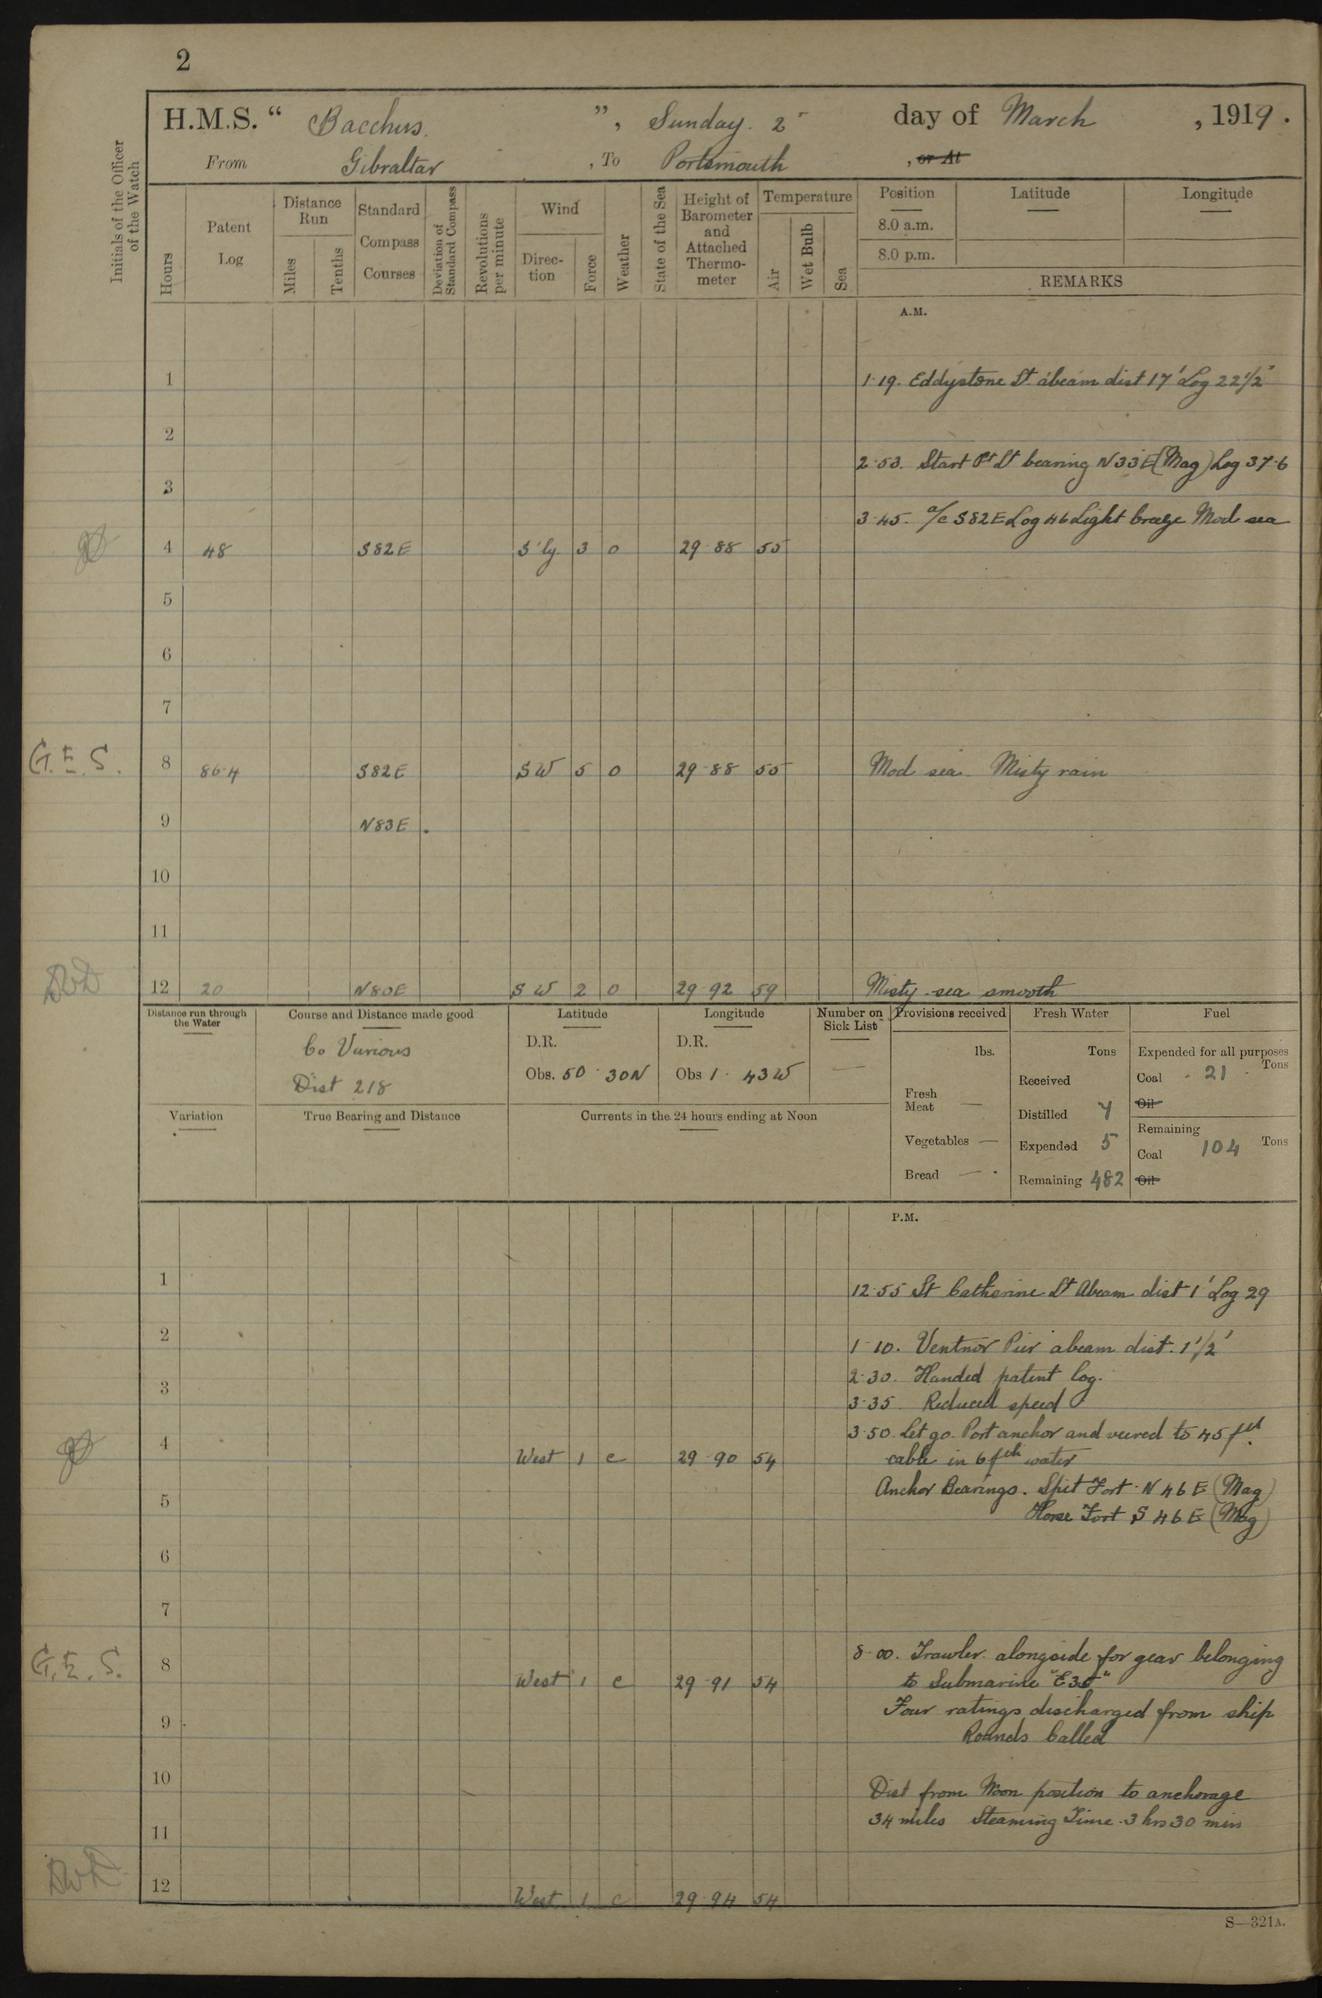 2
H.M.S. " Bacchus. ", Sunday. 2 day of March , 1919.
From Gibraltar , To Portsmouth , or At
Initials of the Officer of the Watch
Hours
Patent Log
Distance Run
Miles
Tenths
Standard Compass Courses
Deviation of Standard Compass
Revolutions per minute
Wind
Direction
Force
Weather
State of the Sea
Height of Barometer and Attached Thermometer
Temperature
Air
Wet Bulb
Sea
Position
Latitude
Longitude
8.0 a.m.
8.0 p.m.
REMARKS
A.M.
1 1·19. Eddystone Lt abeam dist 17' Log 22 1/2'
2
2·53. Start Pt Lt bearing N33E (Mag) Log 37·6
3
3·45. a/c S82E Log 46 Light breeze Mod sea
4 48 S82E S'ly 3 o 29·88 55
5
6
7
G.E.S. 8 86·4 S82E SW 5 o 29·88 55 Mod sea Misty rain
9 N83E.
10
11
DWD 12 20 N80E SW 2 o 29·92 59 Misty sea smooth
Distance run through the Water
Course and Distance made good
Co Various
Dist 218
Latitude
D.R.
Obs. 50·30N
Longitude
D.R.
Obs 1·43W
Number on Sick List
—
Provisions received
lbs.
Fresh Meat —
Vegetables —
Bread —
Fresh Water
Tons
Received
Distilled 7
Expended 5
Remaining 482
Fuel
Expended for all purposes
Coal 21 Tons
Oil
Remaining
Coal 104 Tons
Oil
Variation
True Bearing and Distance
Currents in the 24 hours ending at Noon
P.M.
1 12·55 St Catherine Lt Abeam dist 1' Log 29
2 1·10. Ventnor Pier abeam dist. 1 1/2'
2·30. Handed patent log.
3 3·35. Reduced speed
3·50. Let go. Port anchor and veered to 45 fth
4 West 1 c 29·90 54 cable in 6 fth water
Anchor Bearings. Spit Fort N46E (Mag)
5 Horse Fort S46E (Mag)
6
7
8·00. Trawler alongside for gear belonging
G.E.S. 8 West 1 c 29·91 54 to Submarine "E35"
Four ratings discharged from ship
9 Rounds Called
10 Dist from Noon position to anchorage
34 miles Steaming Time. 3 hrs 30 min
11
DWD 12 West 1 c 29·94 54
S—321A.